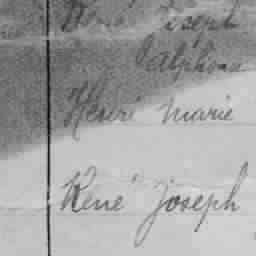 René Joseph
Alphonse
Henri Marie
René Joseph